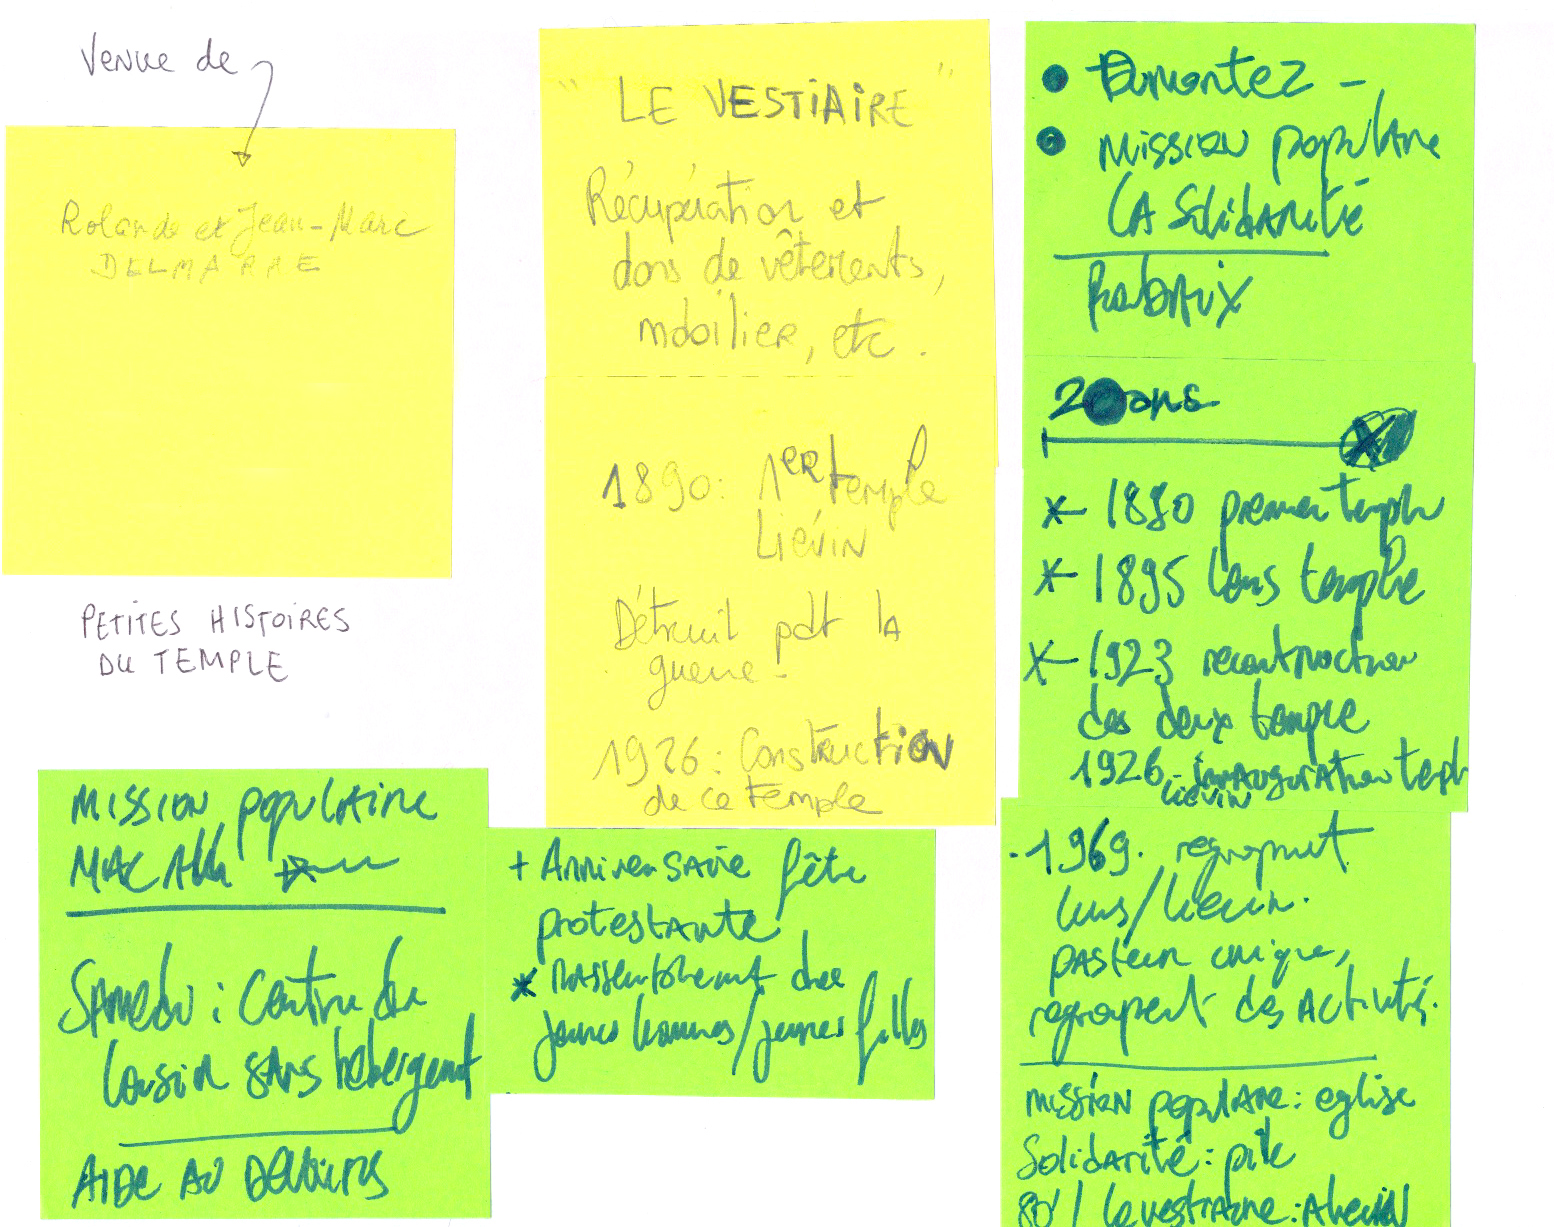 Venue de
Rolande et Jean-Marc
DELMARRE
PETITES HISTOIRES
DU TEMPLE
" LE VESTIAIRE "
Récupération et
dons de vêtements,
mobilier, etc.
1890: 1ER temple
Liévin
Détruit pdt la
guerre!
1926: Construction
de ce temple
• 
• Mission populaire
LA Solidarité
Roubaix
20 ans
1890 premier temple
1895 Lens temple
1923 reconstruction
des deux temple
1926 - inauguration temple
Liévin
Mission populaire
Samedi: Centre de
Loisir sans hébergemt
AIDE AU DEVOIRS
+ Anniversaire fête
protestante
* Rassemblement des
jeunes hommes/jeunes filles
. 1969. regroupmt
Lens/Liévin.
pasteur unique,
regroupent des Activités.
Mission populaire: eglise
Solidarité:
80' / Le vestiaire: